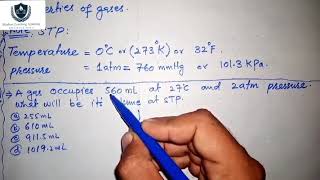 properties of gases.
Note: STP:
Temperature = 0°C or (273°K) or 32°F.
pressure = 1atm = 760 mmHg or 101.3 KPa.
→ A gas occupies 560 mL at 27°C and 2atm pressure.
what will be its volume at STP.
ⓐ 255mL
ⓑ 610mL
ⓒ 911.5mL
ⓓ 1019.2mL